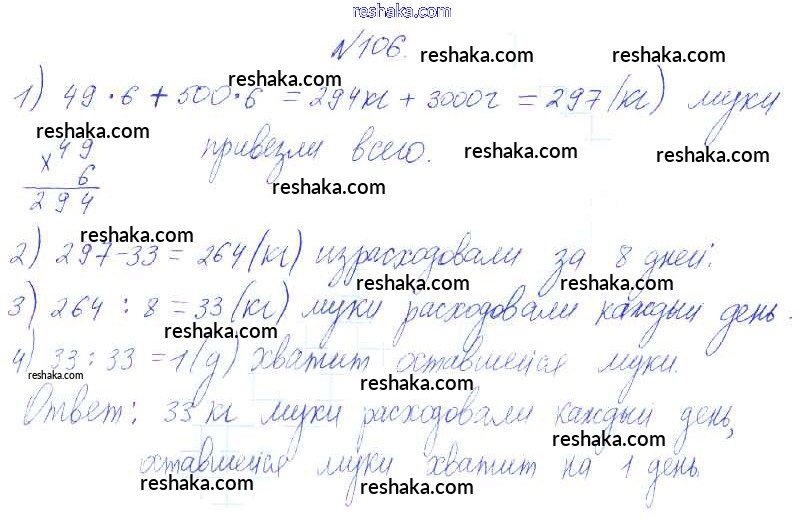 reshaka.com
№106. reshaka.com
reshaka.com
1) 49·6 + 500·6 = 294кг + 3000г = 297 (кг) муки
reshaka.com
×49 привезли всего. reshaka.com reshaka.com
6
reshaka.com
294
reshaka.com
2) 297-33 = 264 (кг) израсходовали за 8 дней.
reshaka.com reshaka.com
3) 264 : 8 = 33 (кг) муки расходовали каждый день.
reshaka.com reshaka.com
4) 33 : 33 = 1 (д) хватит оставшейся муки.
reshaka.com reshaka.com
Ответ: 33 кг муки расходовали каждый день,
reshaka.com reshaka.com
оставшейся муки хватит на 1 день.
reshaka.com reshaka.com reshaka.com
reshaka.com